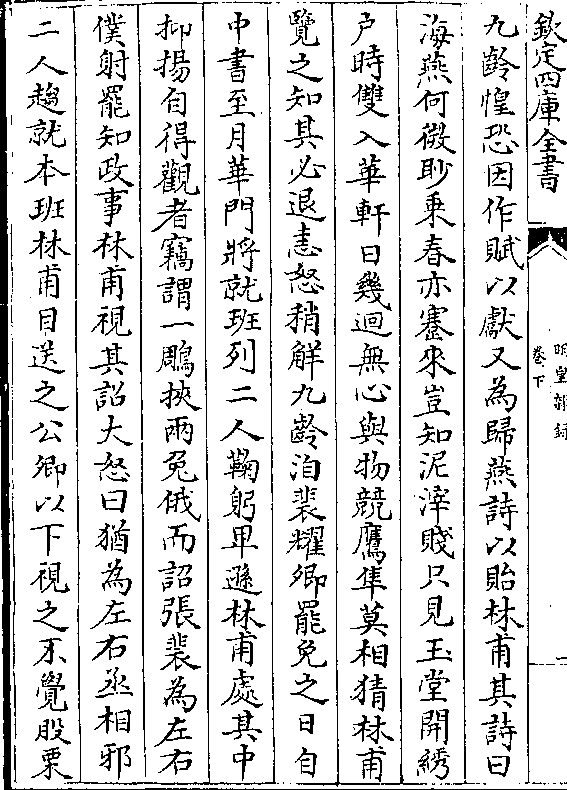 欽定四庫全書
明皇雜録
卷下
九齡惶恐因作賦以獻又為歸燕詩以貽林甫其詩曰
海燕何微眇乗春亦蹇來豈知泥滓賤只見玉堂開綉
户時雙入華軒日幾迴無心與物競鷹隼莫相猜林甫
覽之知其必退恚怒稍解九齡洎裴耀卿罷免之日自
中書至月華門將就班列二人鞠躬卑遜林甫處其中
抑揚自得觀者竊謂一鵰挾兩兔俄而詔張裴為左右
僕射罷知政事林甫視其詔大怒曰猶為左右丞相邪
二人趨就本班林甫目送之公卿以下視之不覺股栗